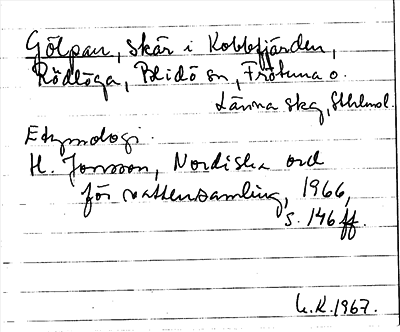 Gölpan, skär i Kobbfjärden,
Rödlöga, Blidö sn, Frötuna o.
Länna skg, Sthlmsl.
Etymologi.
H. Jonsson, Nordiska ord
för vattensamling, 1966,
s. 146 ff.
K.1967.